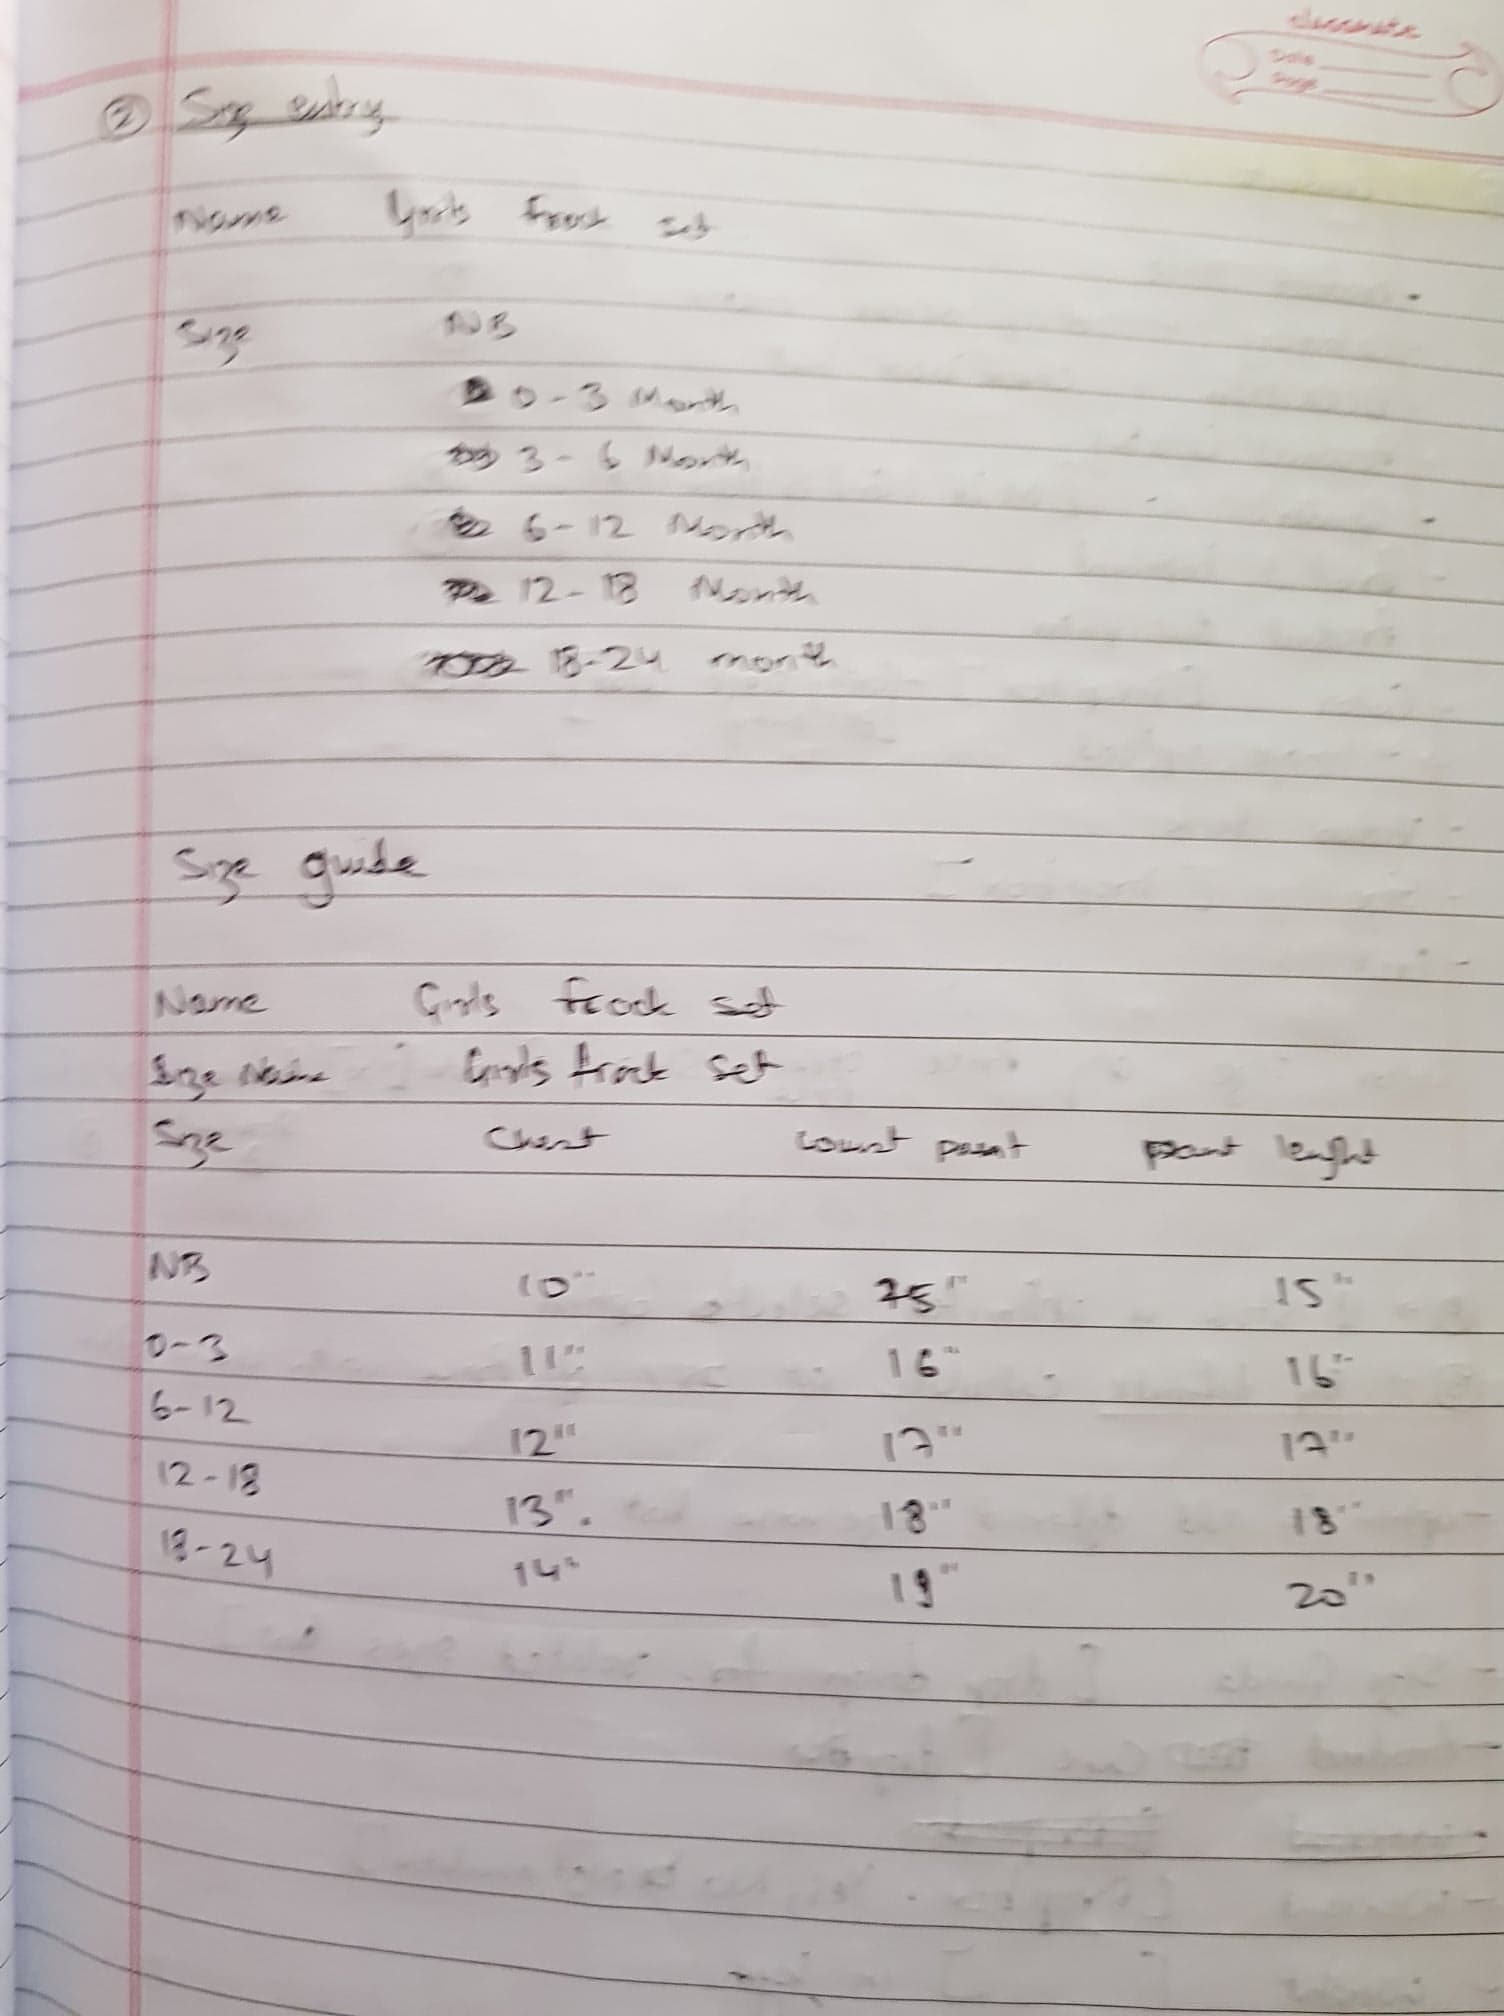 classmate
Date
Page
② Size entry
Name Girls frock set
Size NB
0-3 Month
3-6 Month
6-12 Month
12-18 Month
18-24 month
Size guide
Name Girls frock set
Size Name Girls frock set
Size Chest pant pant lenght
NB 10" 15"
0-3 11" 16" 16"
6-12 12" 17" 17"
12-18 13". 18" 18"
18-24 14" 19" 20"